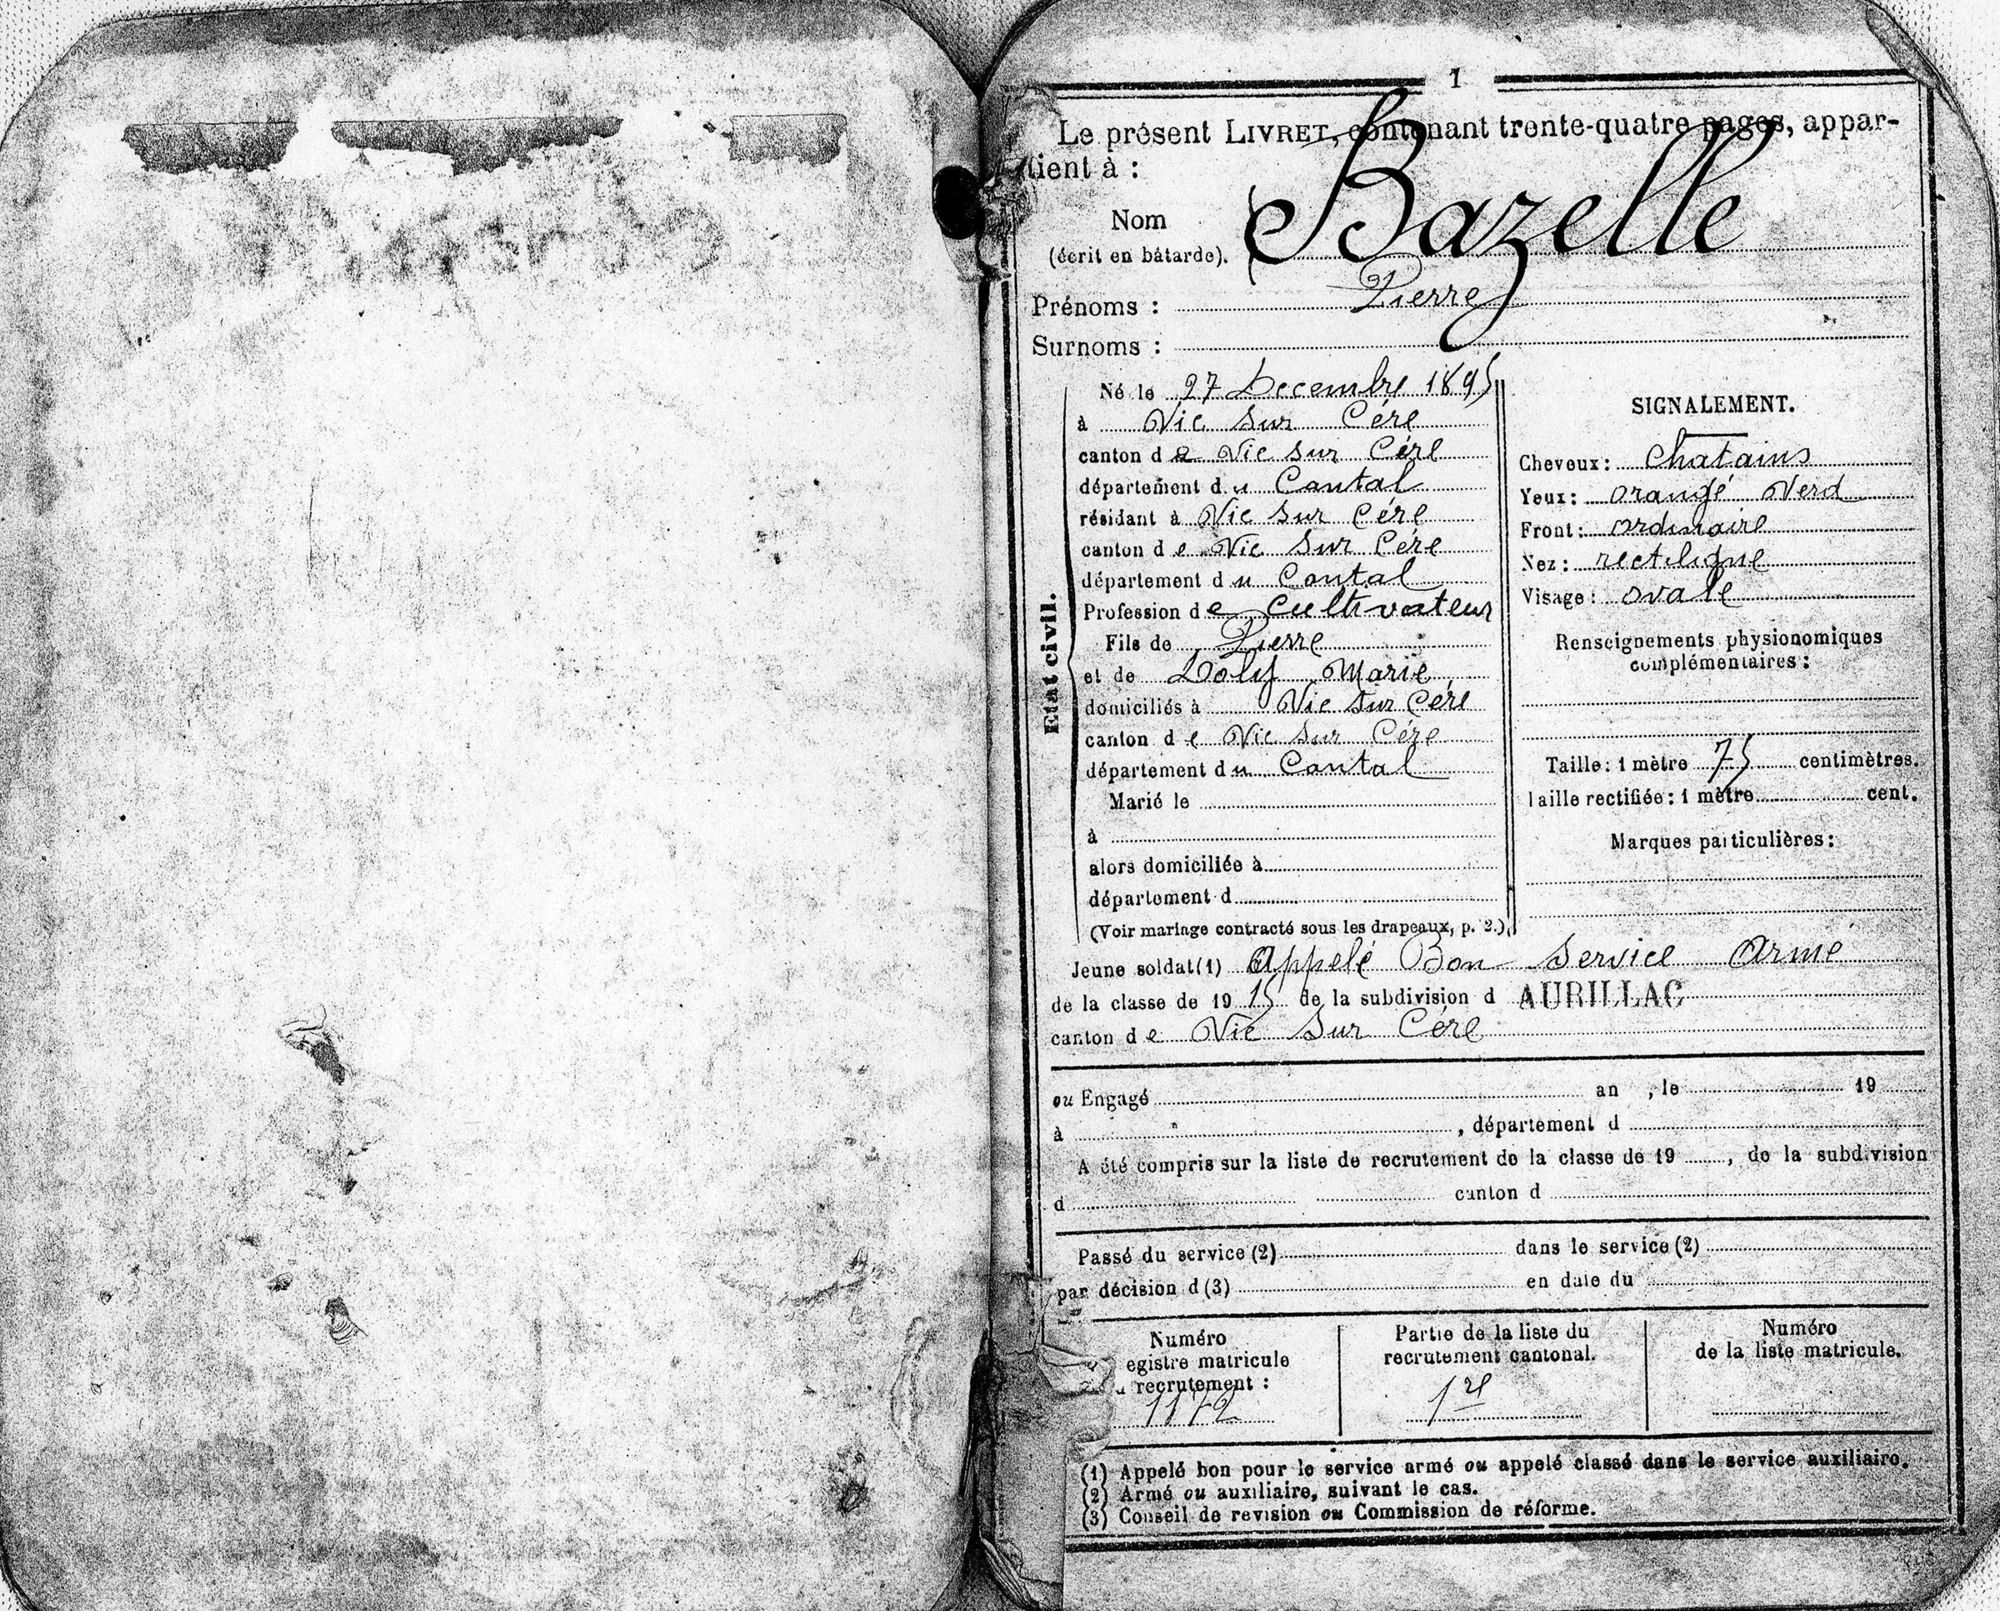 1
Le présent LIVRET, contenant trente-quatre pages, appar-
tient à :
Nom
(écrit en bâtarde). Bazelle
Prénoms : Pierre
Surnoms :
Etat civil.
Né le 27 Decembre 1895
à Vic sur Cére
canton de Vic sur Cére
département du Cantal
résidant à Vic sur Cére
canton de Vic sur Cére
département du Cantal
Profession de Cultivateur
Fils de Pierre
et de Marie
domiciliés à Vic sur Cére
canton de Vic sur Cére
département du Cantal
Marié le
à
alors domiciliée à
département d
(Voir mariage contracté sous les drapeaux, p. 2.)
SIGNALEMENT.
Cheveux : Chatains
Yeux : orangé Verd
Front : ordinaire
Nez : rectiligne
Visage : ovale
Renseignements physionomiques
complémentaires :
Taille : 1 mètre 75 centimètres.
Taille rectifiée : 1 mètre cent.
Marques particulières :
Jeune soldat (1) Appelé Bon Service Armé
de la classe de 1915 de la subdivision d AURILLAC
canton de Vic Sur Cére
ou Engagé an , le 19
à , département d
A été compris sur la liste de recrutement de la classe de 19 , de la subdivision
d canton d
Passé du service (2) dans le service (2)
par décision d (3) en date du
Numéro
egistre matricule
recrutement :
1172
Partie de la liste du
recrutement cantonal.
1re
Numéro
de la liste matricule.
(1) Appelé bon pour le service armé ou appelé classé dans le service auxiliaire.
(2) Armé ou auxiliaire, suivant le cas.
(3) Conseil de revision ou Commission de réforme.